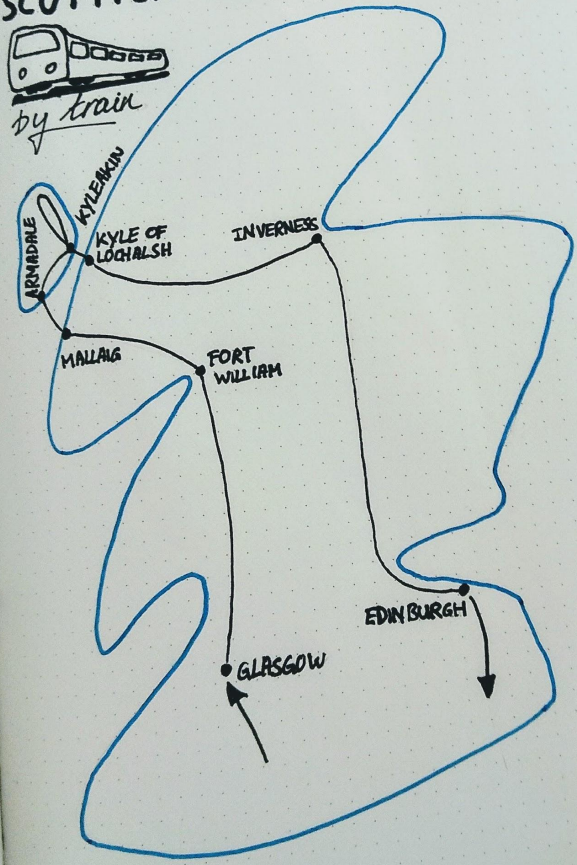 by train
KYLEAKIN
ARMADALE
KYLE OF
LOCHALSH
INVERNESS
MALLAIG
FORT
WILLIAM
EDINBURGH
GLASGOW